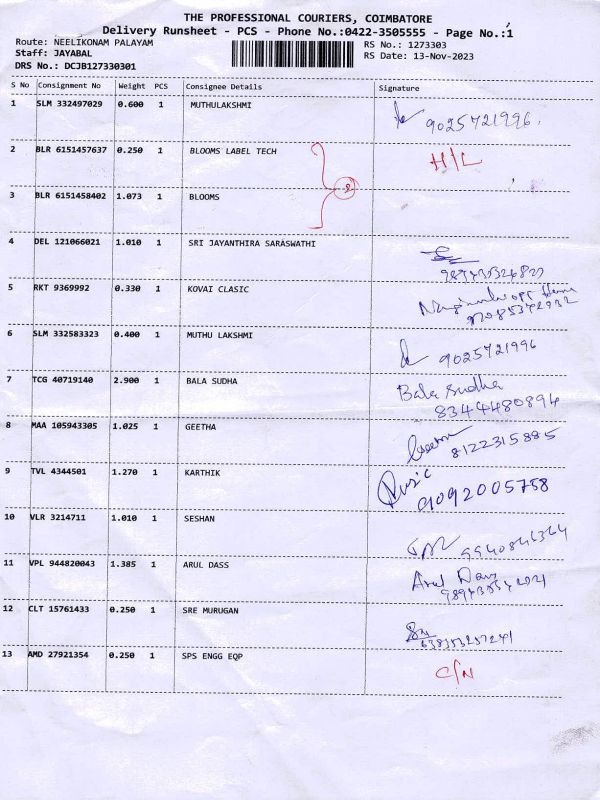 THE PROFESSIONAL COURIERS, COIMBATORE
Delivery Runsheet - PCS - Phone No.:0422-3505555 - Page No.:1
Route: NEELIKONAM PALAYAM
RS No.: 1273303
Staff: JAYABAL
RS Date: 13-Nov-2023
DRS No.: DCJB127330301
S No Consignment No Weight PCS Consignee Details Signature
1 SLM 332497029 0.600 1 MUTHULAKSHMI 9025721996.
2 BLR 6151457637 0.250 1 BLOOMS LABEL TECH H/L
3 BLR 6151458402 1.073 1 BLOOMS
4 DEL 121066021 1.010 1 SRI JAYANTHIRA SARASWATHI
5 RKT 9369992 0.330 1 KOVAI CLASIC
6 SLM 332583323 0.400 1 MUTHU LAKSHMI 9025721996
7 TCG 40719140 2.900 1 BALA SUDHA Bala Sudha
8344480894
8 MAA 105943305 1.025 1 GEETHA 8122315885
9 TVL 4344501 1.270 1 KARTHIK 9092005758
10 VLR 3214711 1.010 1 SESHAN 9940846364
11 VPL 944820043 1.385 1 ARUL DASS Arul Dass
12 CLT 15761433 0.250 1 SRE MURUGAN
13 AMD 27921354 0.250 1 SPS ENGG EQP C/N